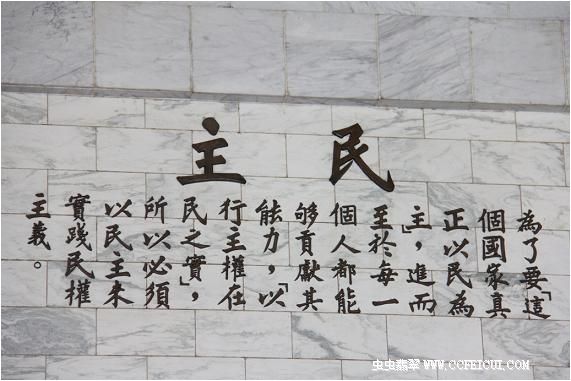 民主
為了要「這
個國家真
正以民為
主」，進而
至於每一
個人都能
够貢獻其
能力，「以
行主權在
民之實」，
所以必須
以民主來
實踐民權
主義。
虫虫翡翠 WWW.CCFEICUI.COM